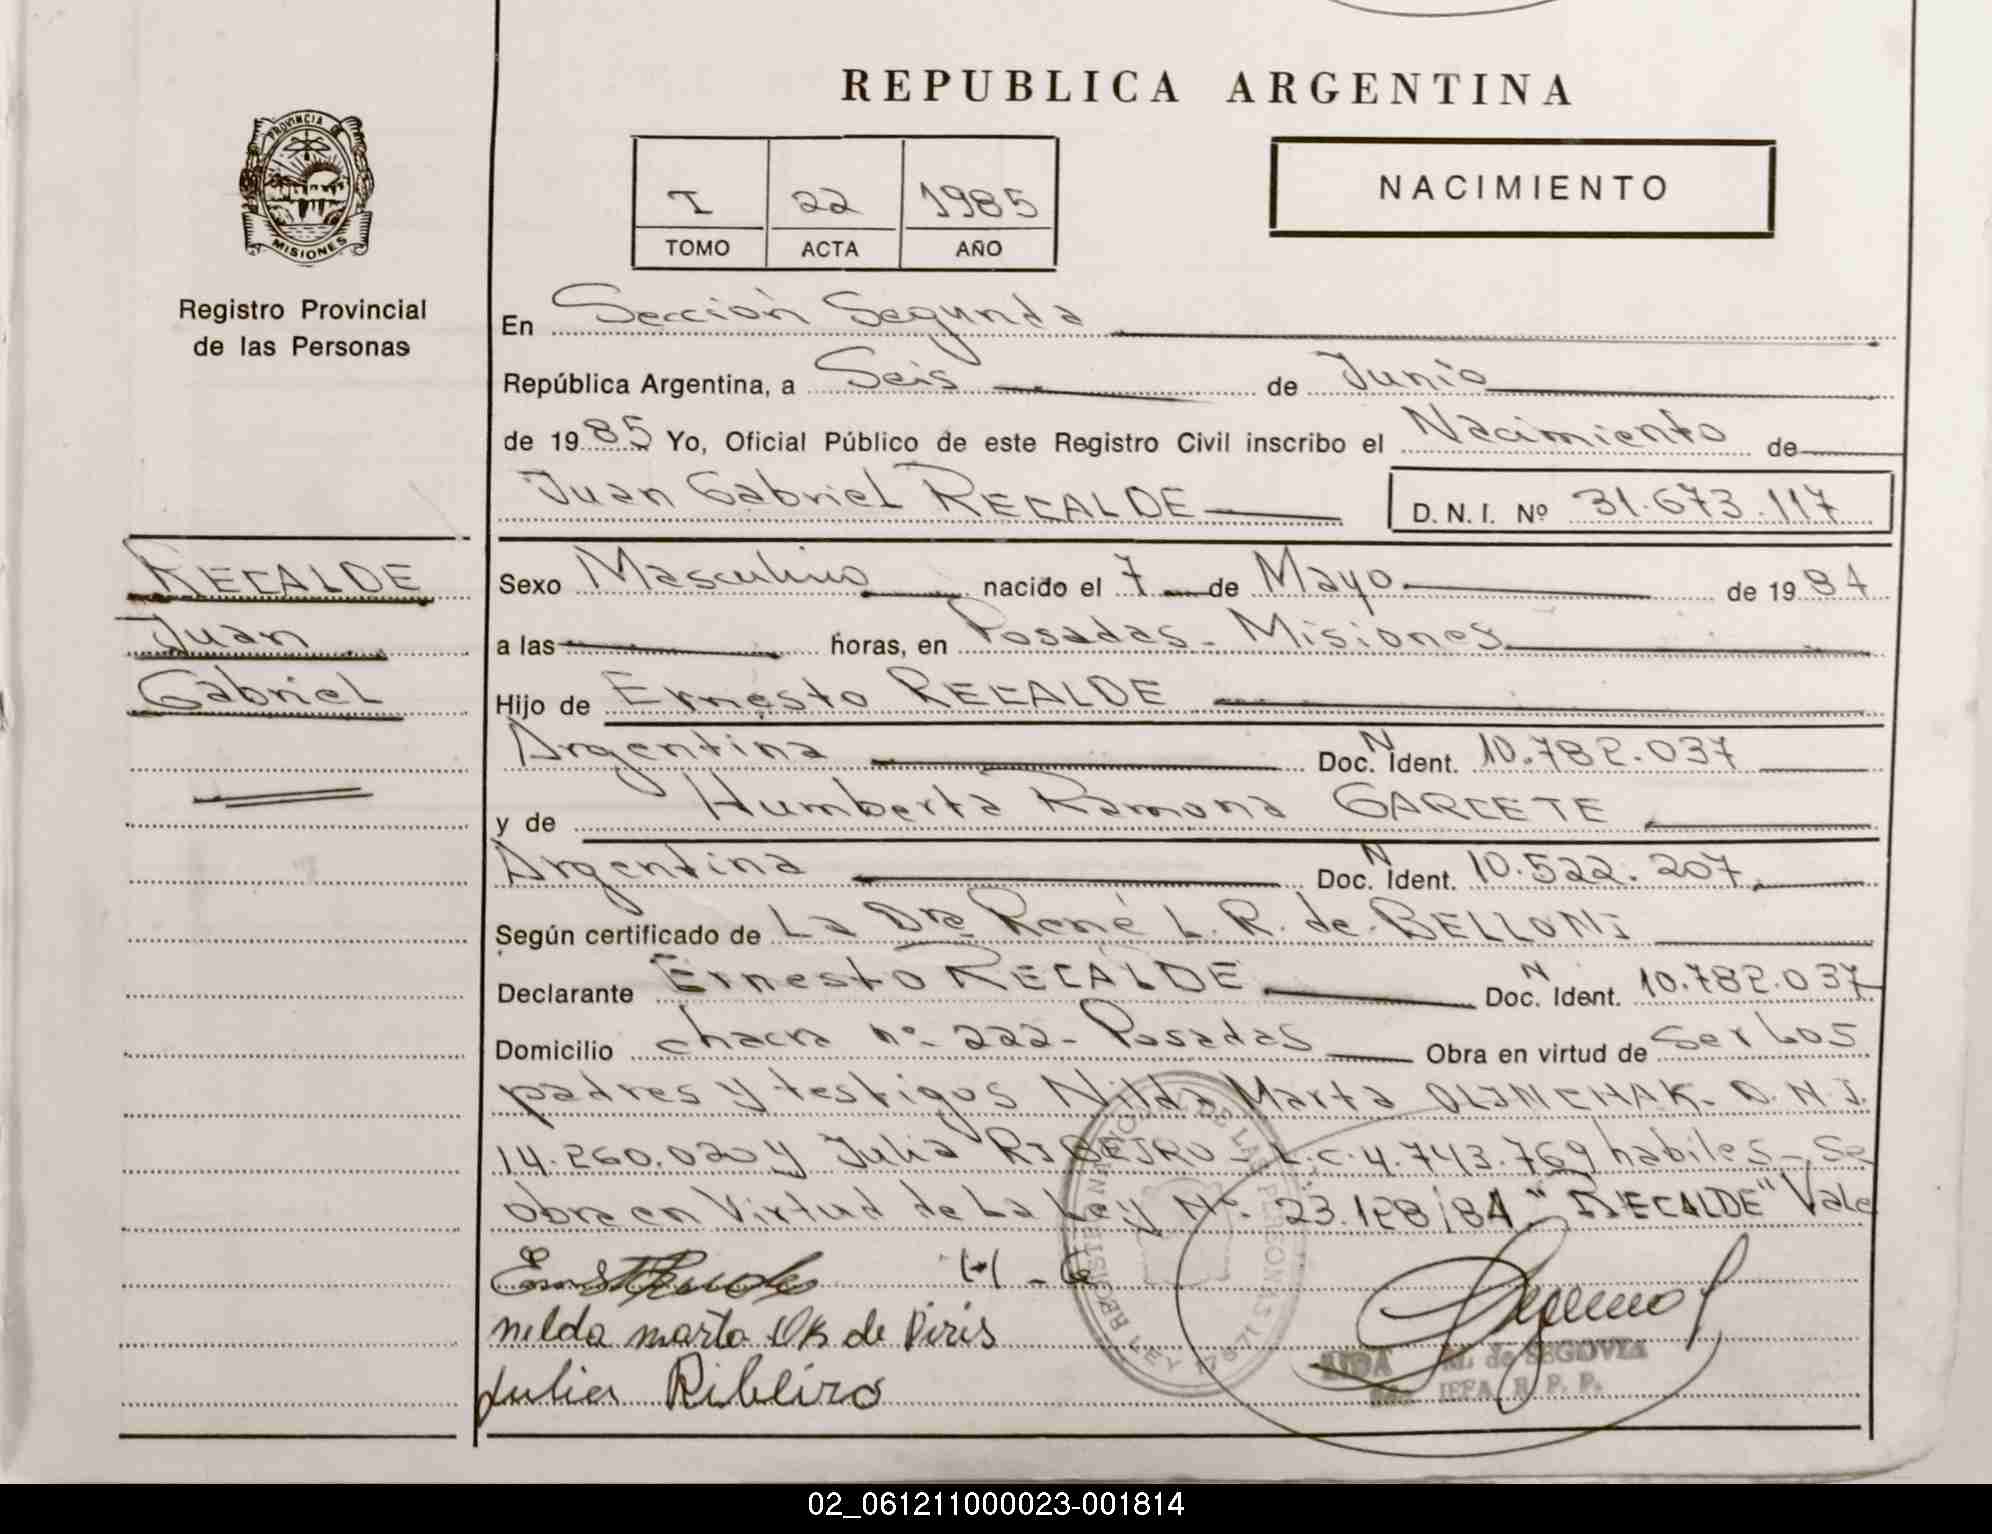 REPUBLICA ARGENTINA
PROVINCIA DE
MISIONES
Registro Provincial
de las Personas
I 22 1985
TOMO ACTA AÑO
NACIMIENTO
En Sección Segunda
República Argentina, a Seis de Junio
de 1985 Yo, Oficial Público de este Registro Civil inscribo el Nacimiento de
Juan Gabriel RECALDE D.N.I. Nº 31.673.117
RECALDE
Juan
Gabriel
Sexo Masculino nacido el 7 de Mayo de 1984
a las horas, en Posadas - Misiones
Hijo de Ernesto RECALDE
Argentina Doc. N Ident. 10.782.037
y de Humberta Ramona GARCETE
Argentina Doc. N Ident. 10.522.207
Según certificado de La Dra René L. R. de BELLONI
Declarante Ernesto RECALDE Doc. N Ident. 10.782.037
Domicilio chacra nº 222 - Posadas Obra en virtud de ser los
padres y testigos Nilda Marta D.N.I.
14.260.020 y Julia RIBEIRO - L.C. 4.743.769 habiles - Se
obra en Virtud de La Ley Nº 23.128/84 "RECALDE" Vale
H - G
nilda marta de Piris
Julia Ribeiro
DE LAS PERSONAS
LEY 17671
AIDA de SEGOVIA
JEFA R. P. P.
02_061211000023-001814